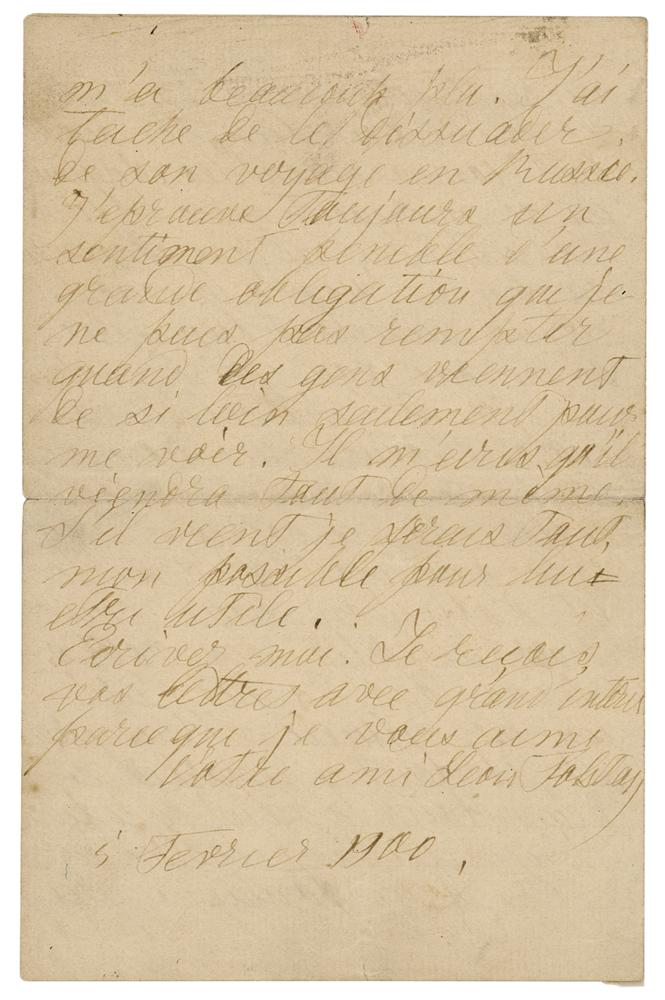 m'a beaucoup plu. J'ai
taché de le dissuader
de son voyage en Russie.
J'eprouve toujours un
sentiment penible d'une
grande obligation que je
ne puis pas remplir
quand des gens viennent
de si loin seulement pour
me voir. Il m'écris qu'il
viendra tout de même.
S'il vient je ferais tout
mon possible pour lui
être utile.
Ecrivez moi. Je reçois
vos lettres avec grand
parceque je vous aime
Votre ami Leon Tolstoy
5 Fevrier 1900.